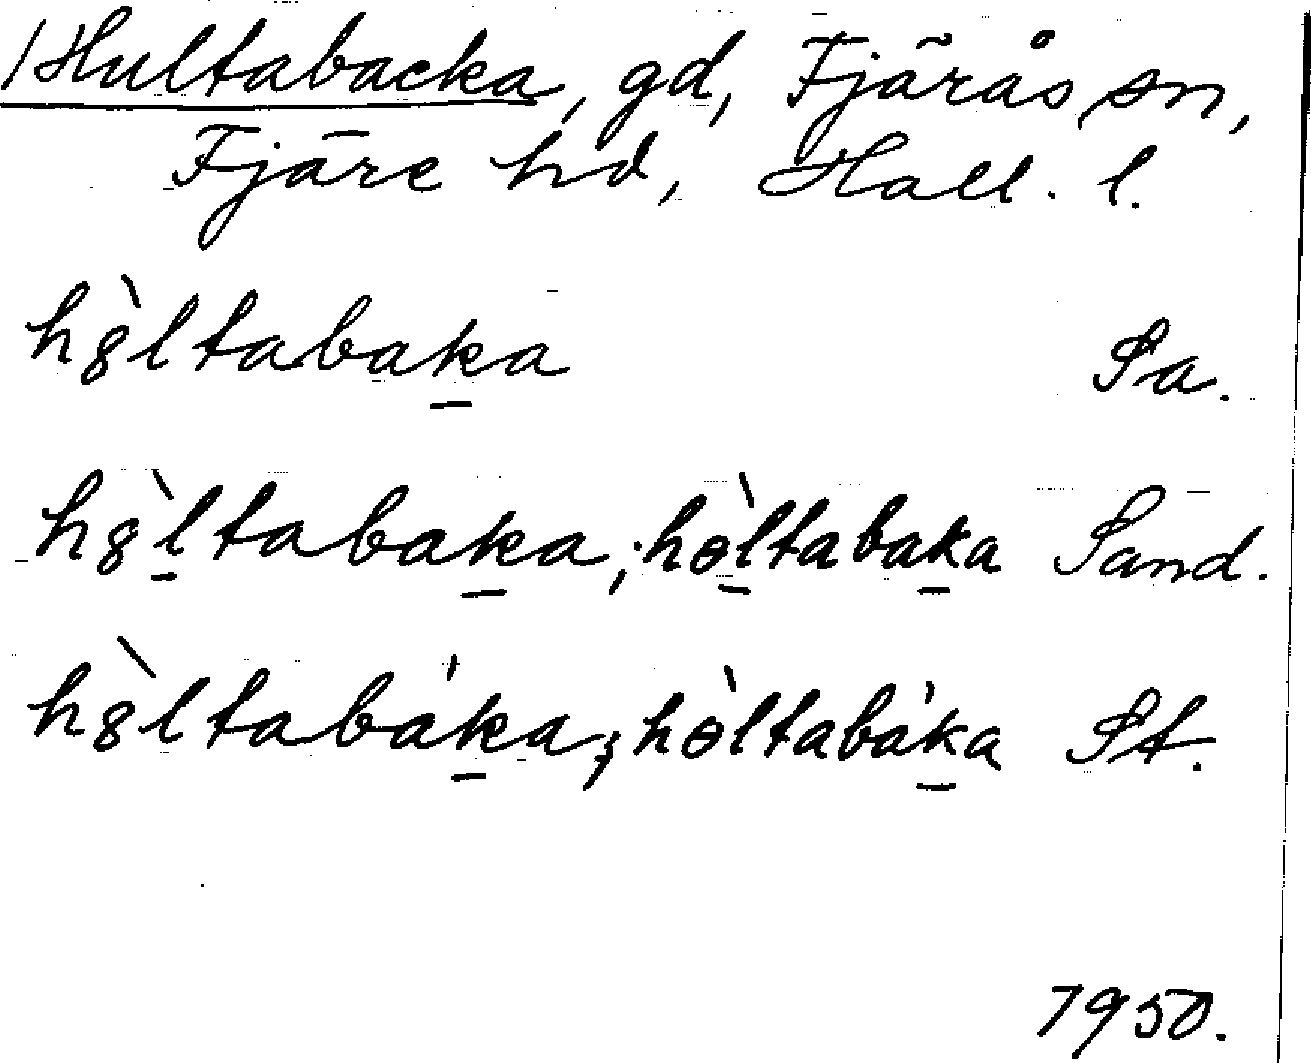 Hultabacka, gd, Fjärås sn,
Fjäre hd, Hall. l.
hò̤ltabak̠a Sa.
h8̀l̠tabak̠a; hɵ̀l̠tabak̠a Sand.
h8̀ltabák̠a; hɵ̀ltabák̠a St.
1950.